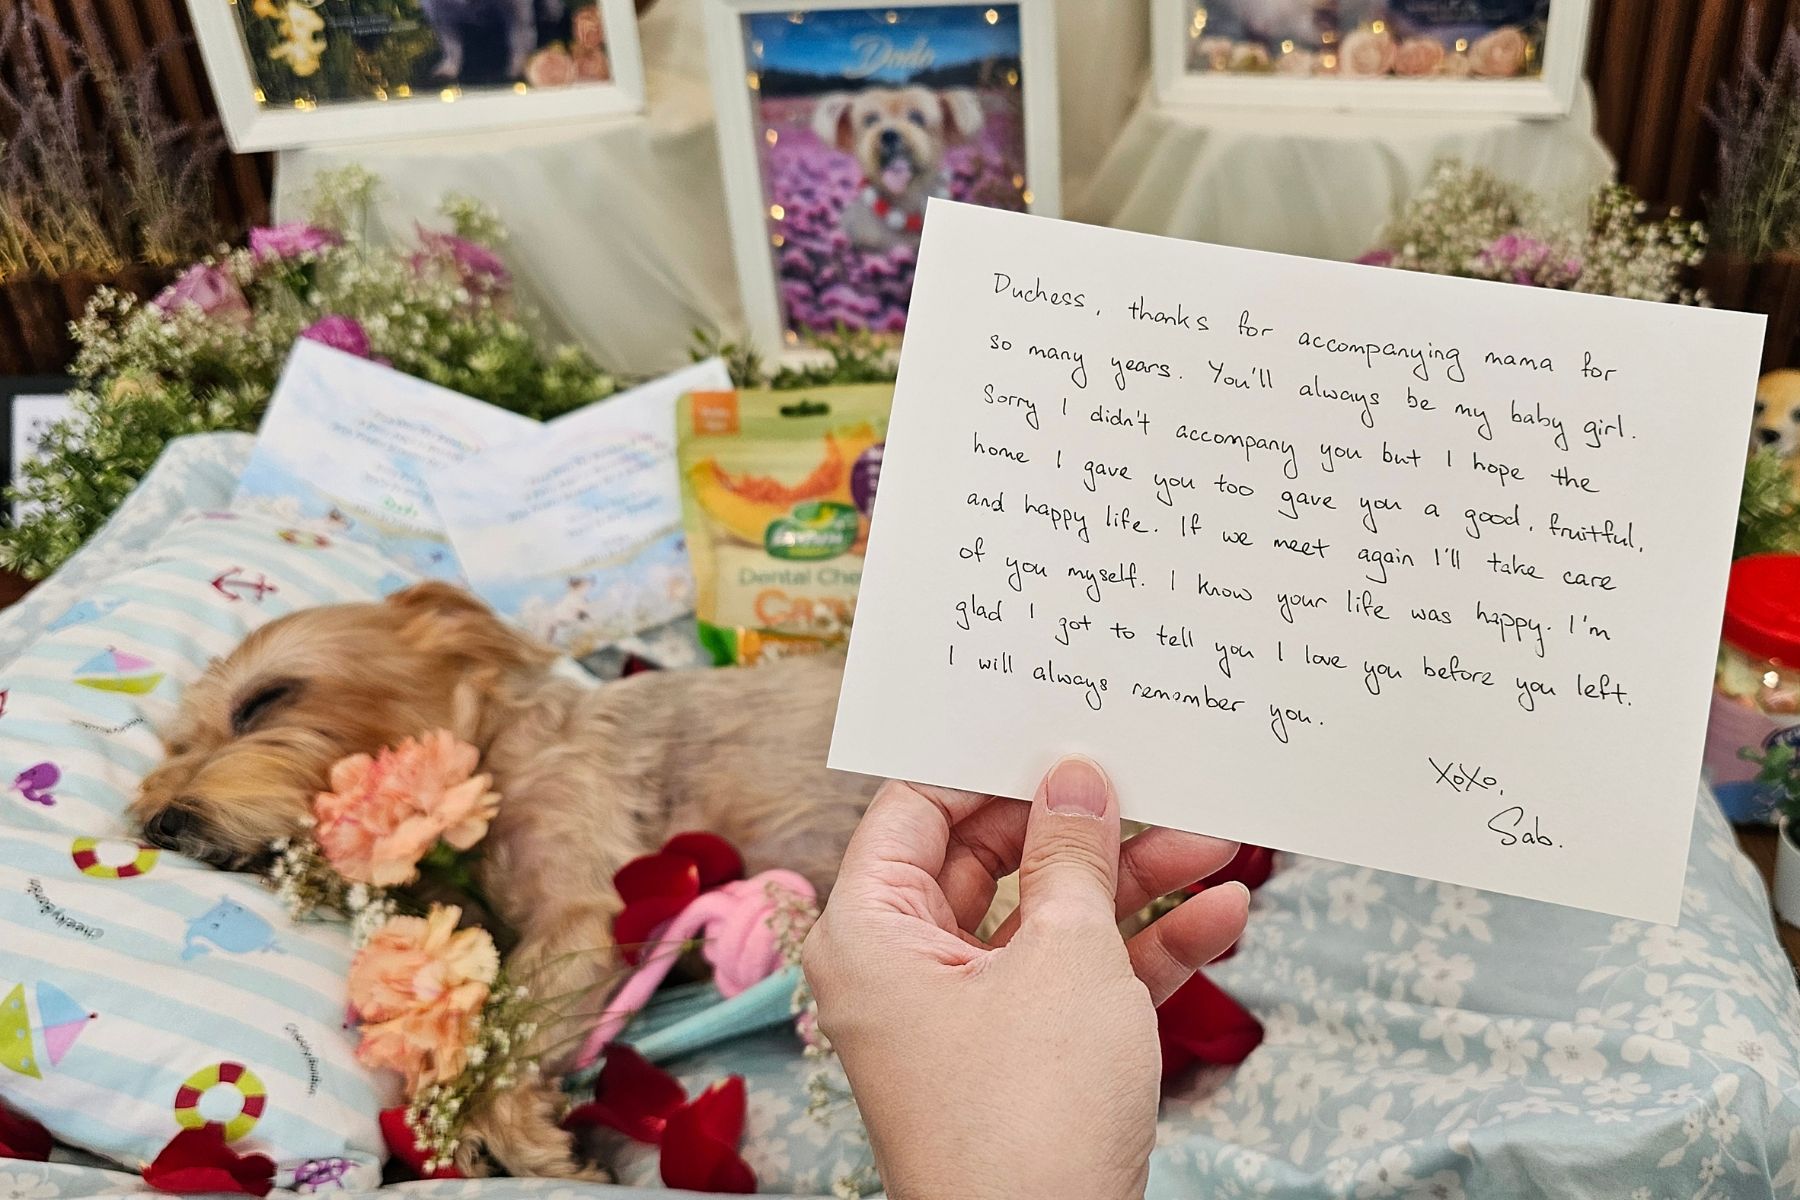 Dodo
Duchess, thanks for accompanying mama for
so many years. You'll always be my baby girl.
Sorry I didn't accompany you but I hope the
home I gave you too gave you a good, fruitful,
and happy life. If we meet again I'll take care
of you myself. I know your life was happy. I'm
glad I got to tell you I love you before you left.
I will always remember you.
XoXo,
Sab.
Dental Che